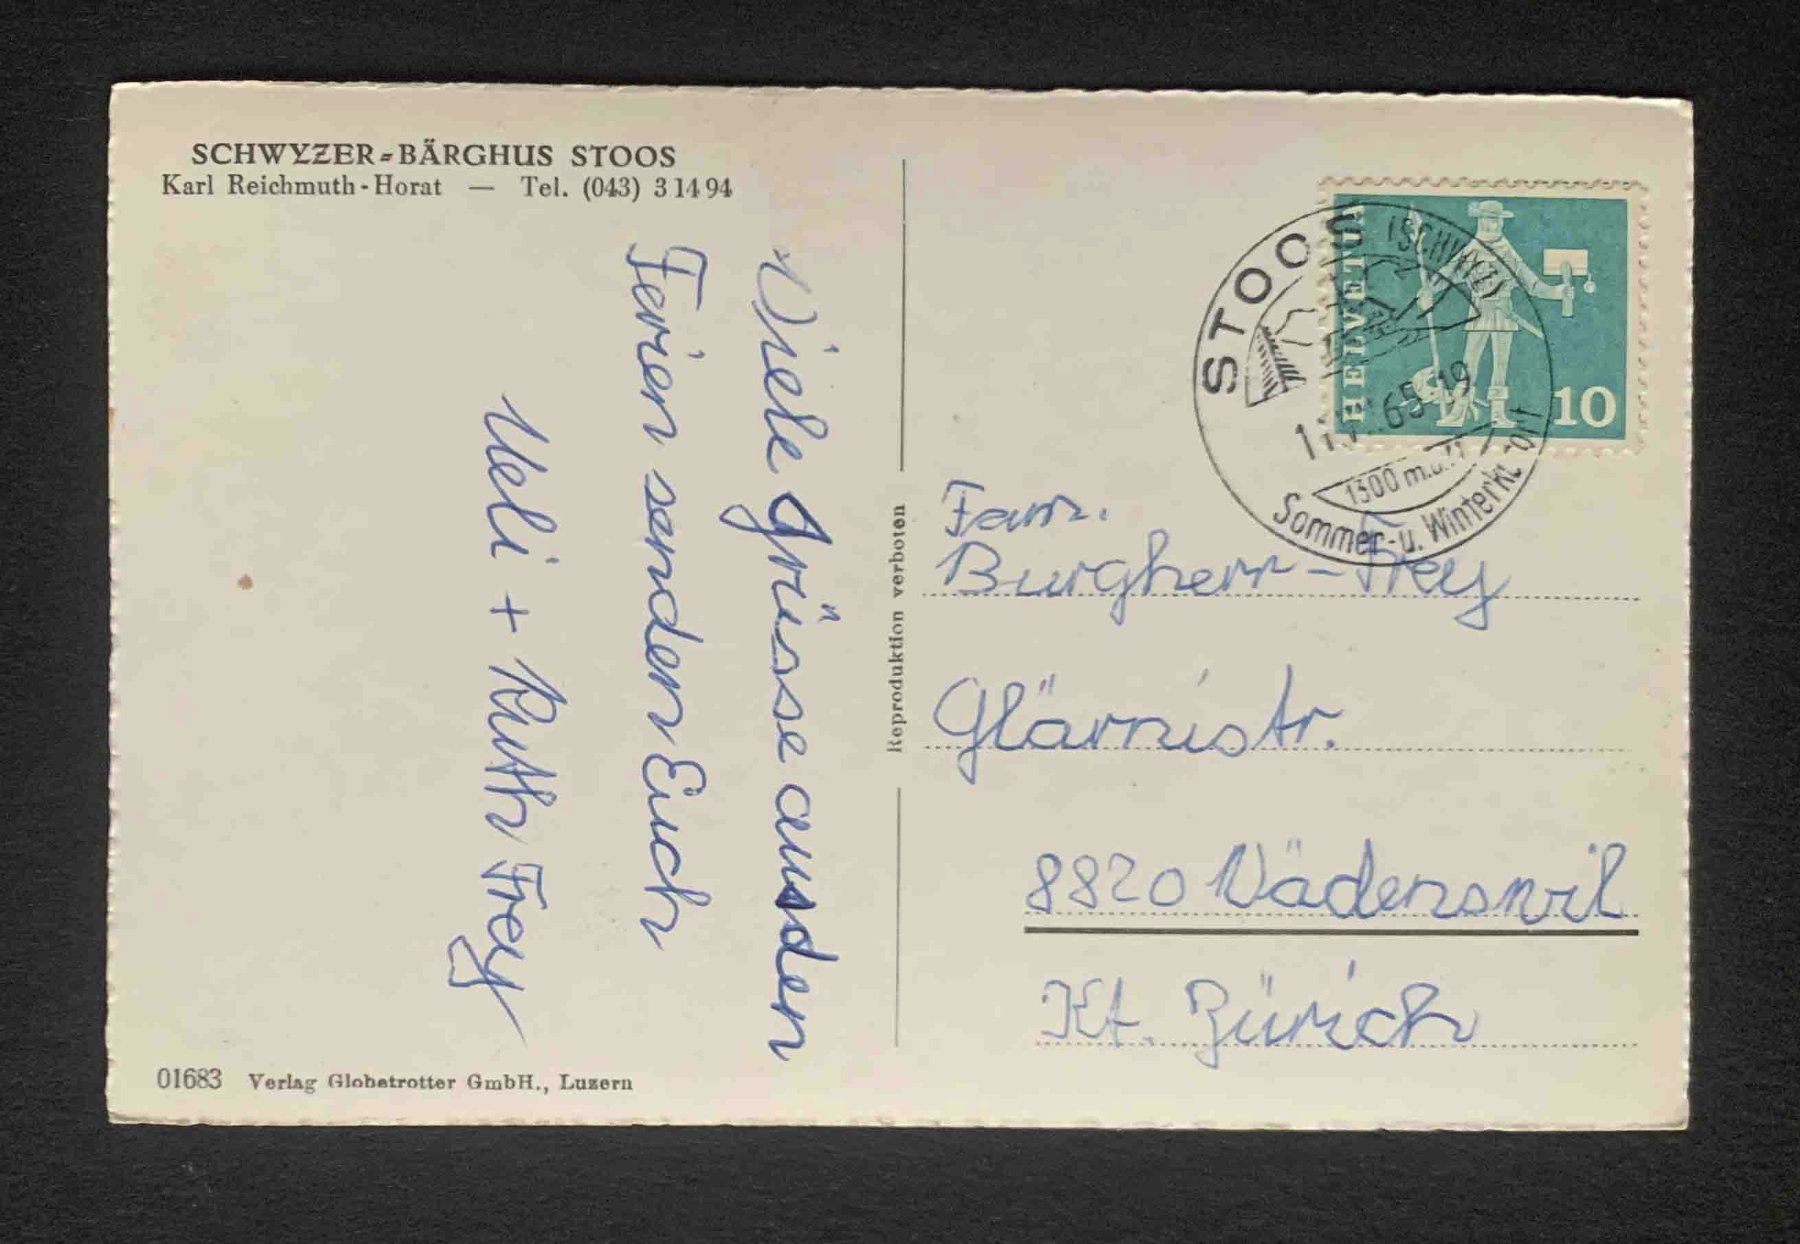 SCHWYZER-BÄRGHUS STOOS
Karl Reichmuth-Horat — Tel. (043) 3 14 94
Viele Grüsse aus den
Ferien senden Euch
Ueli + Ruth Frey
01683 Verlag Globetrotter GmbH., Luzern
Reproduktion verboten
HELVETIA
10
STOOS (SCHWYZ)
65-19
1300 m.ü.M
Sommer- u. Winterkurort
Fam.
Burgherr-Frey
Glärnistr.
8820 Wädenswil
Kt. Zürich